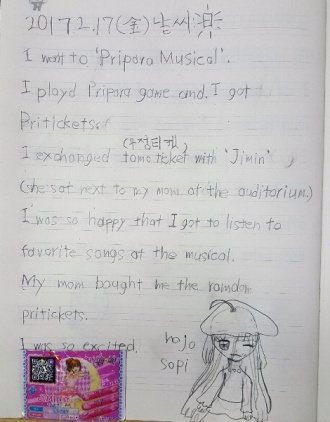 2017.2.17(金) 날씨:
I went to 'Pripara Musical'.
I playd Pripara game and. I got
Pritickets.
(우정티켓)
I exchanged tomo ticket with 'Jimin'.
(she sat next to my mom at the auditorium.)
I was so happy that I got to listen to
favorite songs at the musical.
My mom bought me the ramdom
pritickets.
I was so excited.
hojo
sopi